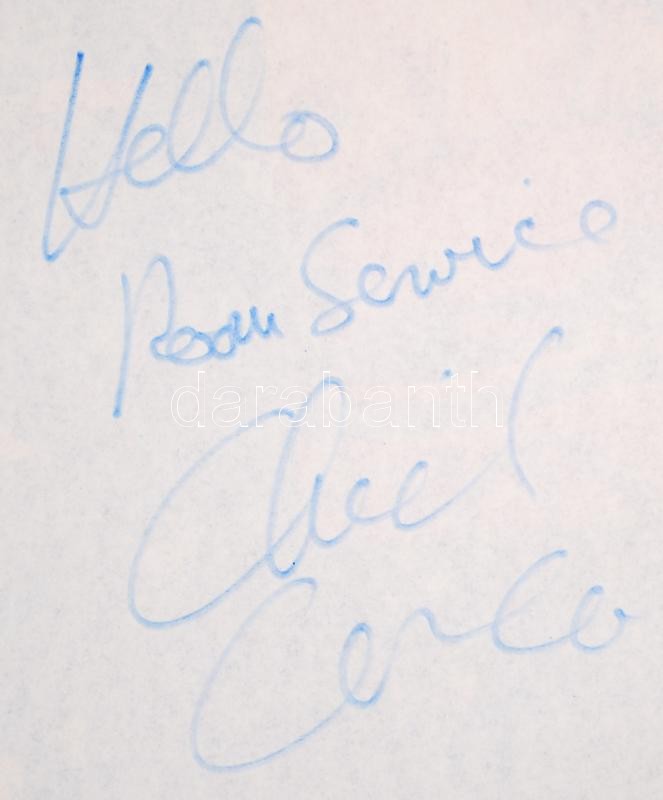 Hello
Room Service
darabanth
Chick
Corea